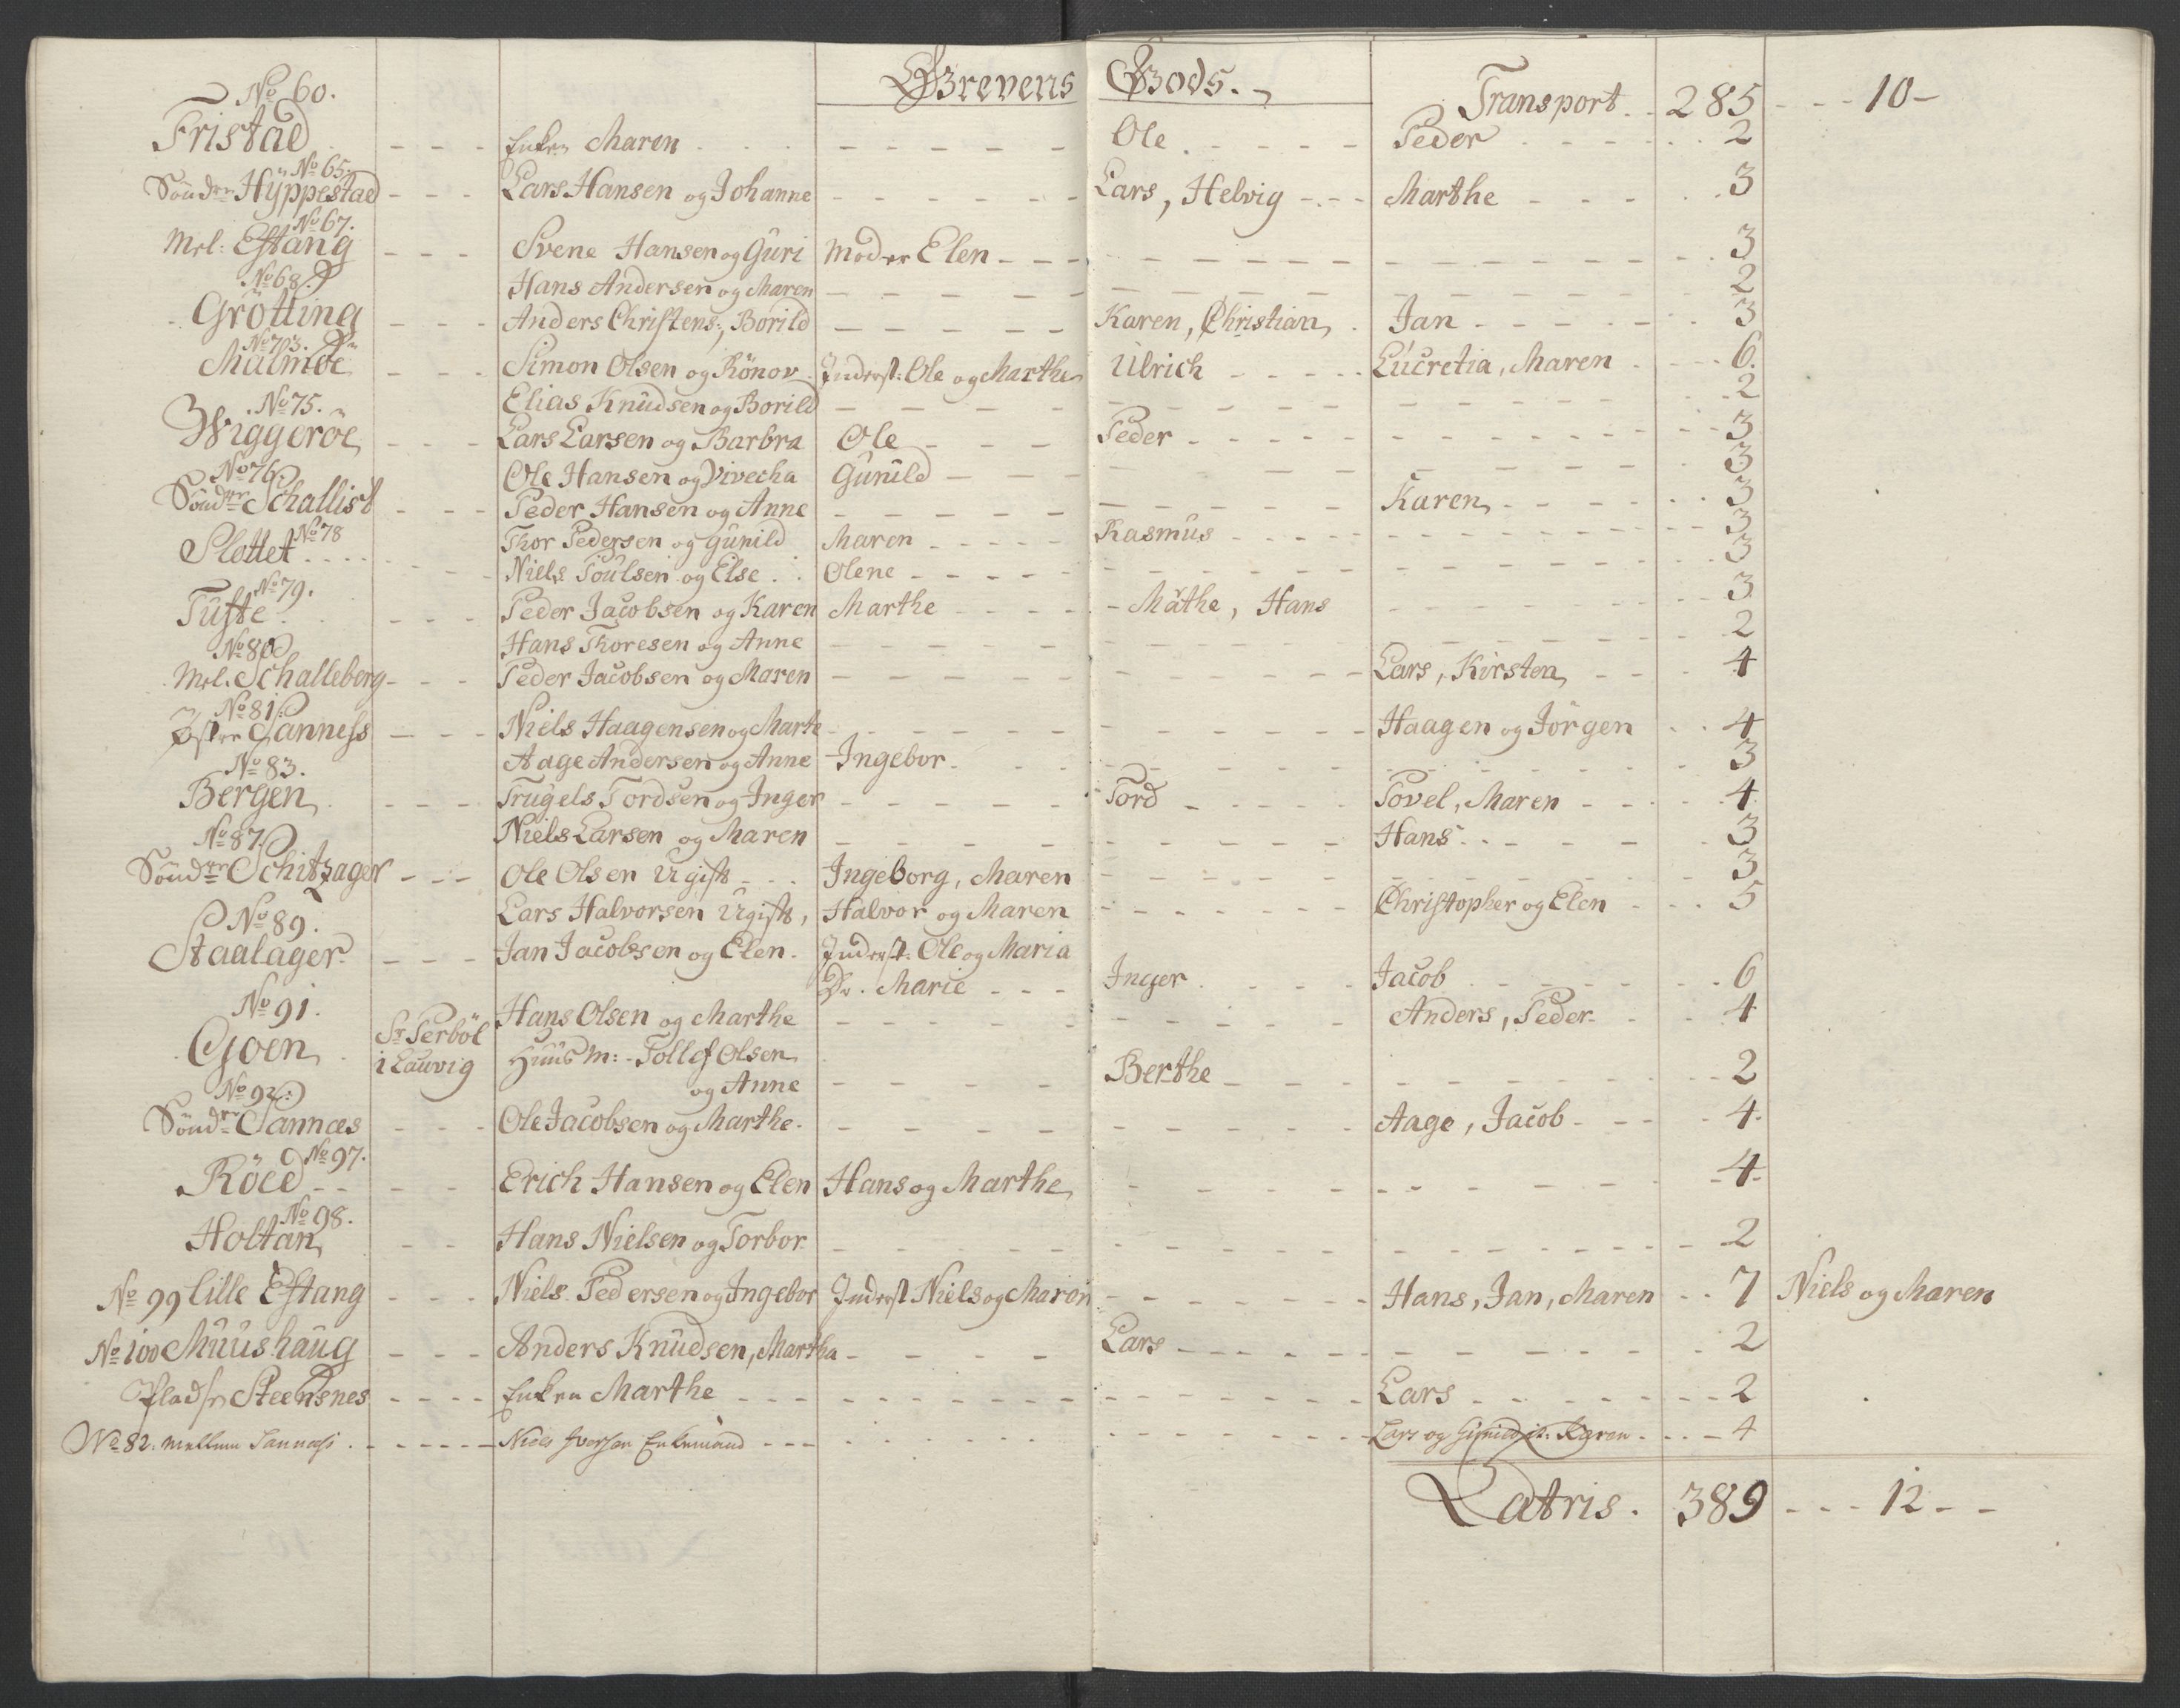 Grevens Gods.
Transport 285 - - - 10 -
No 60.
Fristad - - - Enken Maren - - - Ole - - - Peder - - - 2
No 65.
Sönder Hÿppestad - - - Lars Hansen og Johanne - - - Lars, Helvig - - - Marthe - - - 3
No 67.
Mel: Eftang - - - Svene Hansen og Guri Moder Elen - - - 3
No 68.
Hans Andersen og Maren - - - 2
Grötting - - - Anders Christens:, Borild - - - Karen, Christian, Jan - - - 3
No 73.
Malmöe - - - Simon Olsen og Rönov Inderst: Ole og Marthe Ulrich - - - Lucretia, Maren - - - 6.
Elias Knudsen og Borild - - - 2
No 75.
Wiggeröe - - - Lars Larsen og Barbra Ole - - - Peder - - - 3
No 76.
Ole Hansen og Vivecha Gunild - - - 3
Sönder Schallist - - - Peder Hansen og Anne - - - Karen - - - 3
No 78
Thor Pedersen og Gunild Maren - - - Rasmus - - - 3
Slottet - - - Niels Poulsen og Else Olene - - - 3
No 79.
Tufte - - - Peder Jacobsen og Karen Marthe - - - Mathe, Hans - - - 3
No 80
Hans Thoresen og Anne - - - 2
Mel. Schalleberg - - - Peder Jacobsen og Maren - - - Lars, Kirsten - - - 4
No 81.
Öster Sanness - - - Niels Haagensen og Marte - - - Haagen og Jörgen - - - 4
No 83.
Aage Andersen og Anne Ingebor - - - 3
Bergen - - - Trugels Tordsen og Inger - - - Tord - - - Povel, Maren - - - 4
No 87.
Niels Larsen og Maren - - - Hans - - - 3
Sönder Schitzager - - - Ole Olsen Ugift - - - Ingeborg, Maren - - - 3
No 89.
Lars Halvorsen Ugift, Halvor og Maren - - - Christopher og Elen - - - 5
Staalager - - - Jan Jacobsen og Elen. Inderst: Ole og Maria
Do. Marie - - - Inger - - - Jacob - - - 6
No 91.
Hans Olsen og Marthe - - - Anders, Peder - - 4
Goen Sr Perböl
i Lauvig Huus M: Tollef Olsen
og Anne - - - Berthe - - - 2
No 92.
Sönder Sannæs - - - Ole Jacobsen og Marthe - - - Aage, Jacob - - - 4
No 97.
Röed - - - Erich Hansen og Elen Hans og Marthe - - - 4
No 98.
Holtan - - Hans Nielsen og Torbor - - - 2
No 99 Lille Eftang - - - Niels Pedersen og Ingebor Inderst Niels og Maren - - - Hans, Jan, Maren - - 7 Niels og Maren
No 100 Muushaug - - - Anders Knudsen, Martha - - - Lars - - - 2
Pladsen Steensnes - - - Enken Marthe - - - Lars - - - 2
No 82. mellem Sannæss - - - Niels Iversen Enkemand - - - Lars og Gunild it. Karen - - - 4
Latris. 389 - - - 12 - -